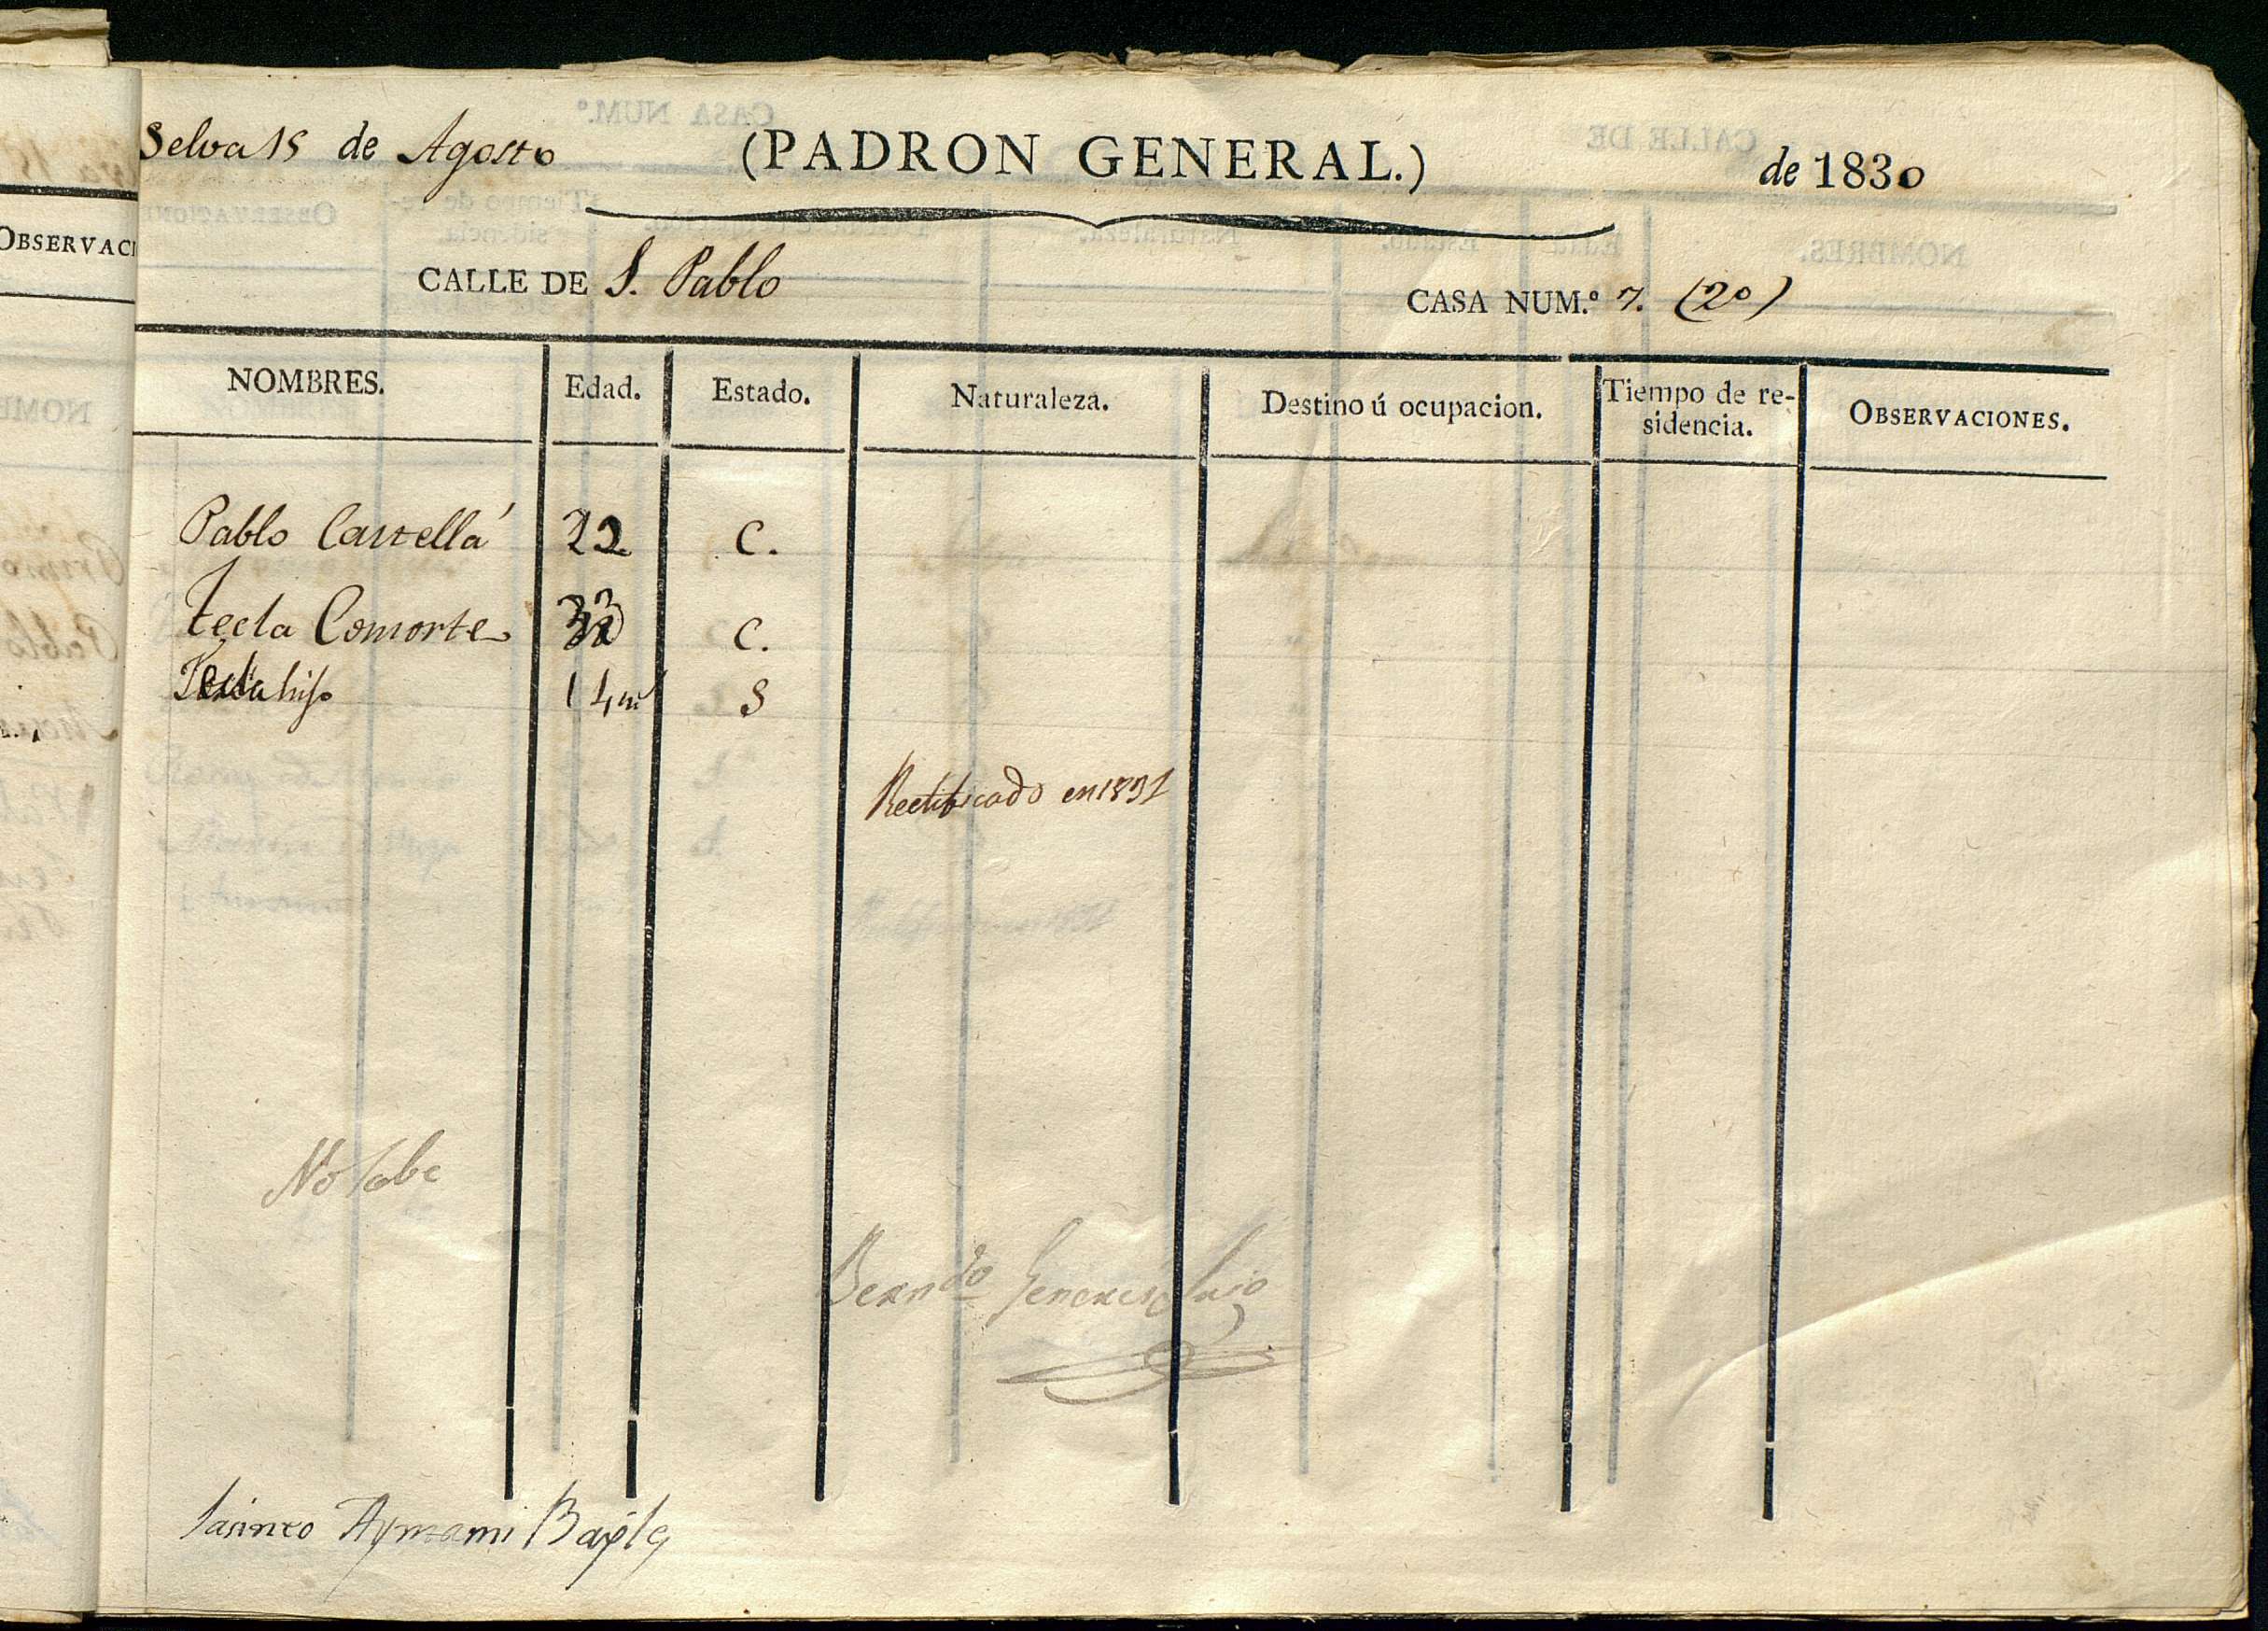 OBSERVACI
Selva 15 de Agosto (PADRON GENERAL.) de 1830
CALLE DE S. Pablo CASA NUM.º 7. (2º)
NOMBRES. Edad. Estado. Naturaleza. Destino ú ocupacion. Tiempo de re- OBSERVACIONES.
sidencia.
Pablo Castellá 22 C.
Tecla Consorte C.
Tecla hija 14 m S
Rectificado en 1831
No Sabe
Bern.do
Jasinto Aymami Bayle